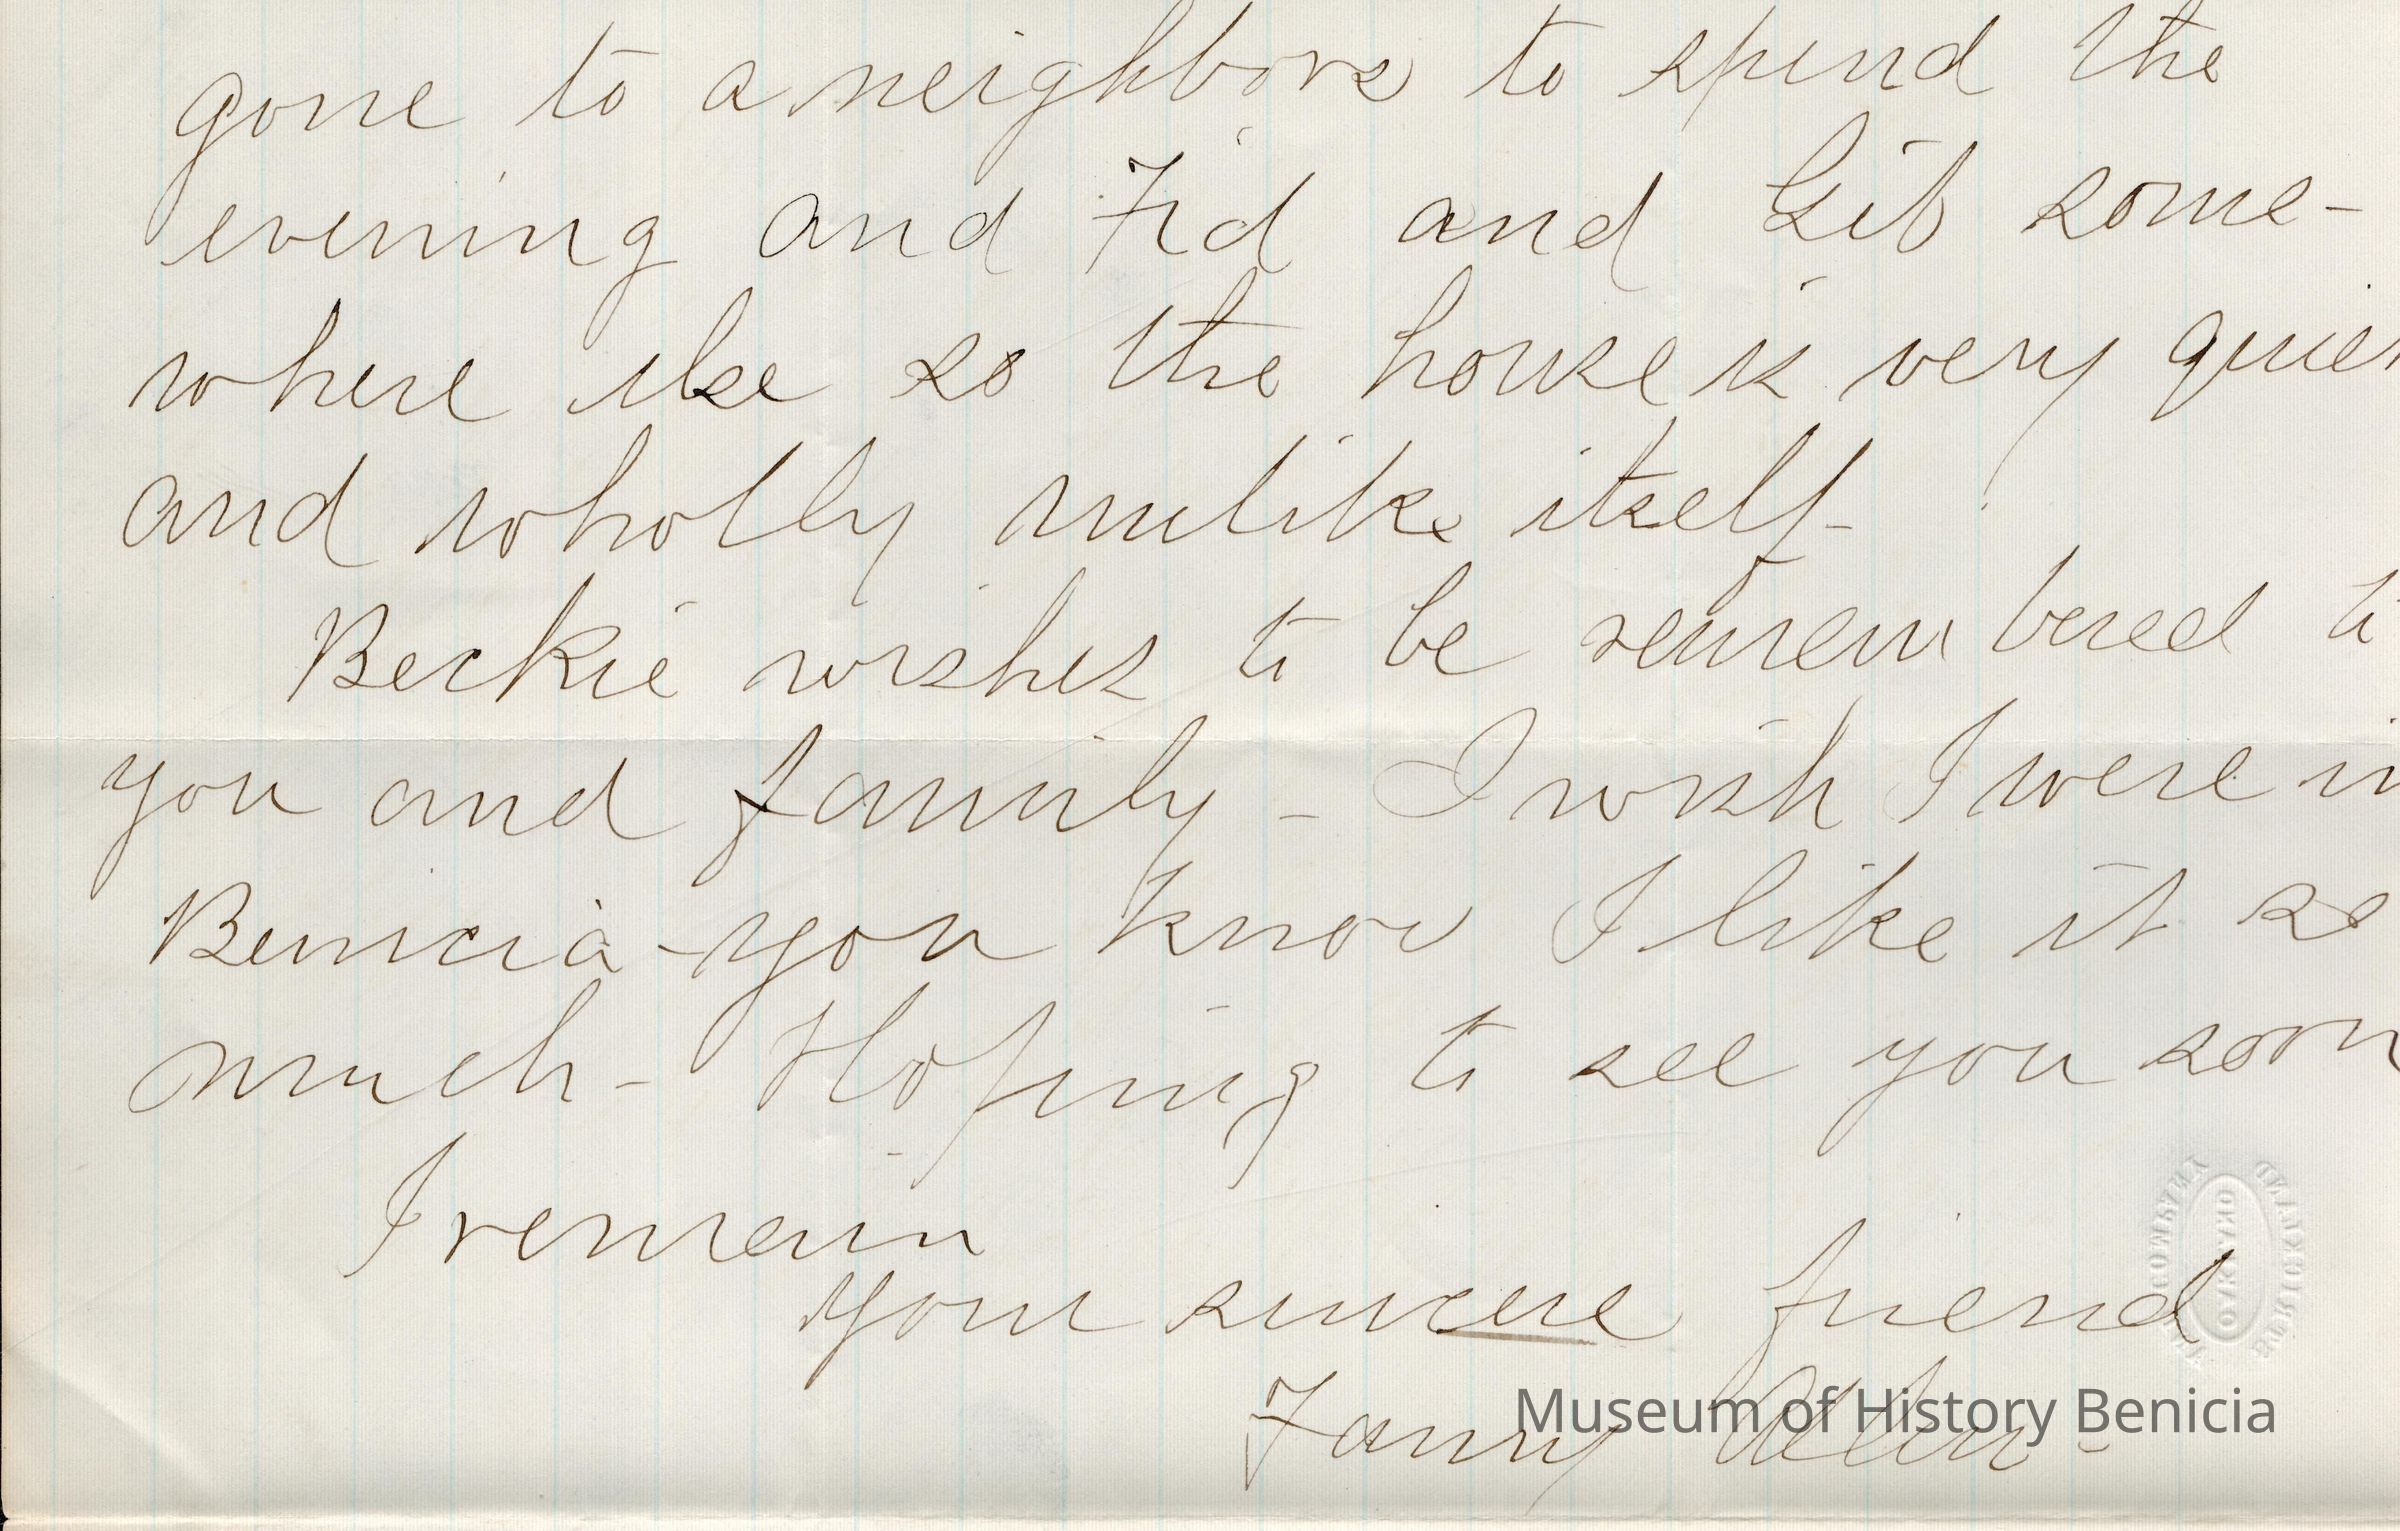 gone to a neighbors to spend the
evening and Fid and Lib some-
where else so the house is very quiet
and wholly unlike itself-
Beckie wishes to be remembered to
you and family - I wish I were in
Benicia - you know I like it so
much - Hoping to see you soon
I remain
Your sincere friend
Fanny
Museum of History Benicia